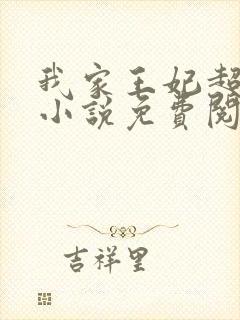 我家王妃超
小说免費閱
吉祥里